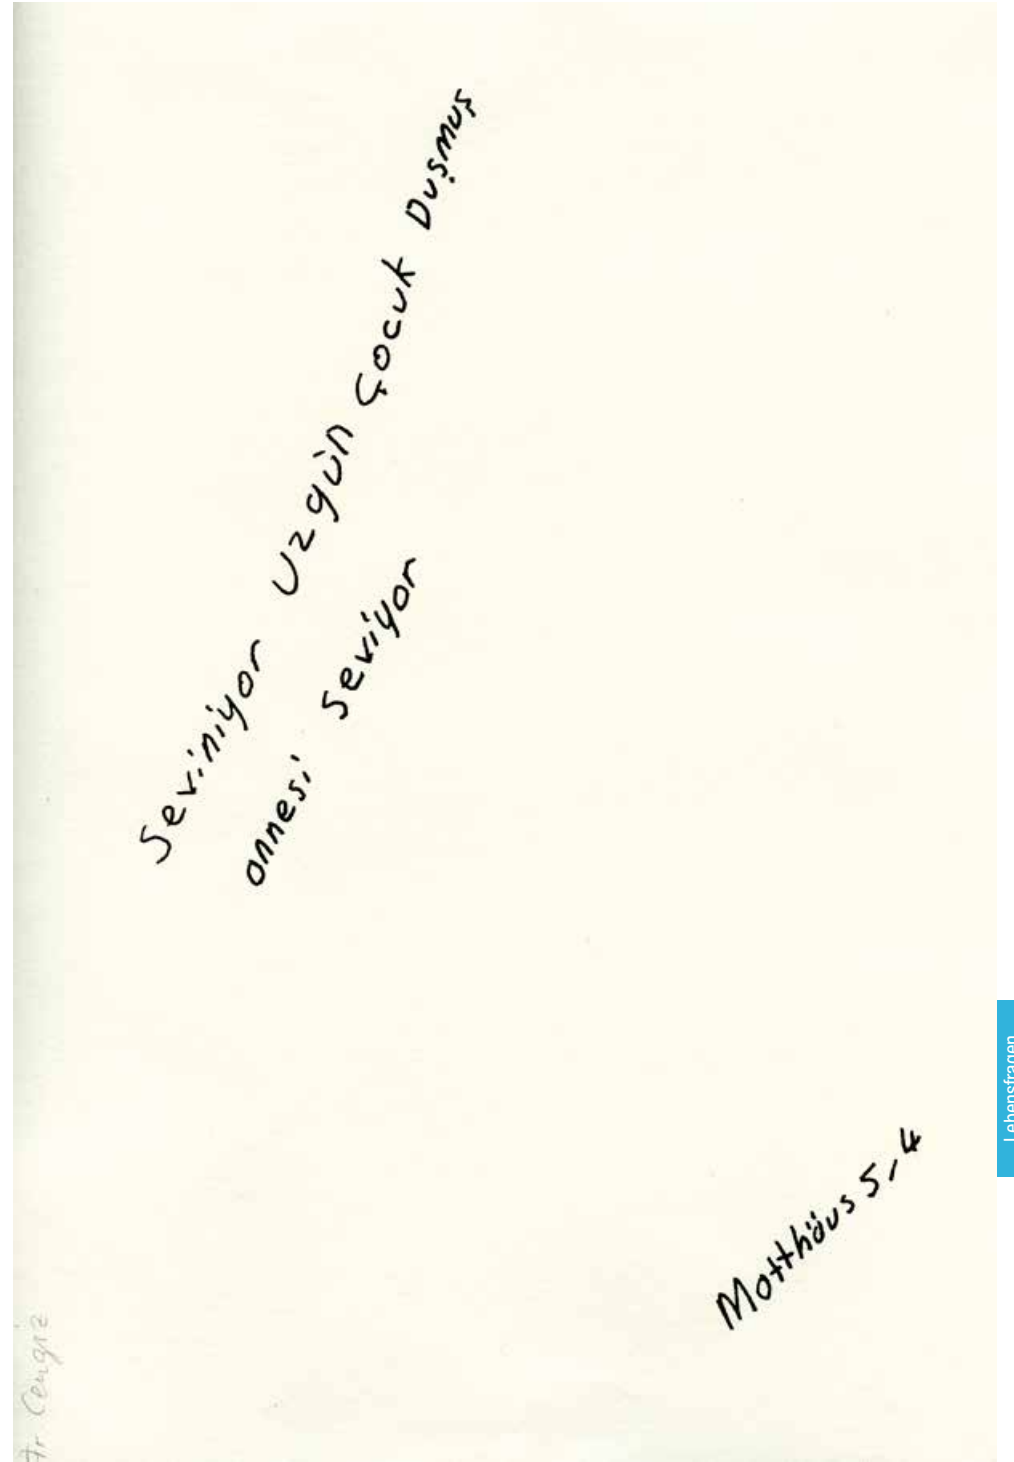 Seviniyor Uzgün Çocuk Duşmuş
annesi Seviyor
Matthäus 5,4
Lebensfragen
Cengiz